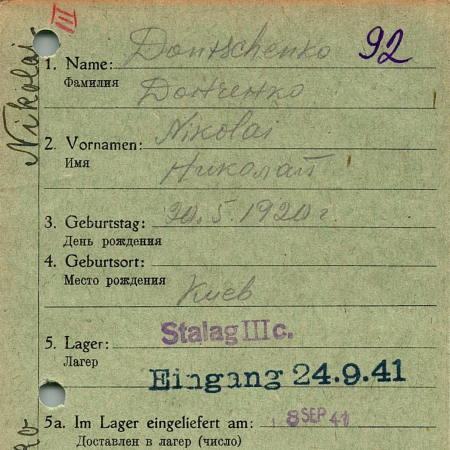 III
Nikolai
1. Name: Dontschenko 92
Фамилия Донченко
2. Vornamen: Nikolai
Имя Николай
3. Geburtstag: 20.5.1920 г.
День рождения
4. Geburtsort:
Место рождения Киев
5. Lager: Stalag III c.
Лагер Eingang 24.9.41
5a. Im Lager eingeliefert am: 8 SEP 41
Доставлен в лагер (число)